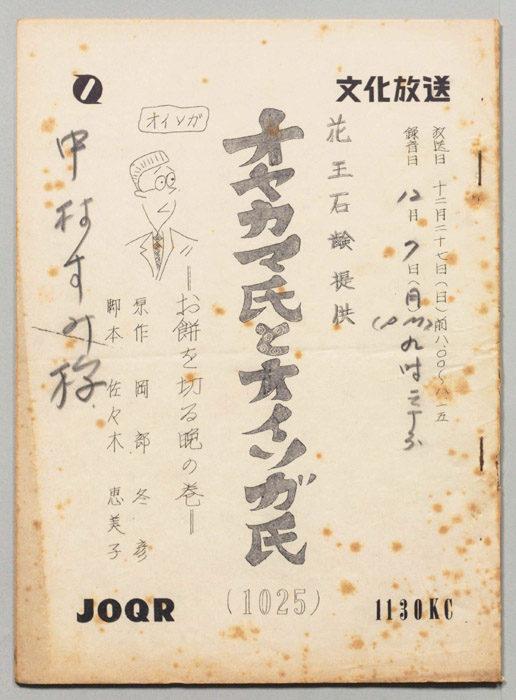 文化放送
放送日 十二月二十七日(日)前八.〇〇~八.一五
録音日 12月7日(月)
花王石鹸提供
オヤカマ氏とオイソガ氏
(1025)
=お餅を切る晩の巻=
原作 岡部冬彦
脚本 佐々木恵美子
オイソガ
中村すみ
JOQR
1130KC